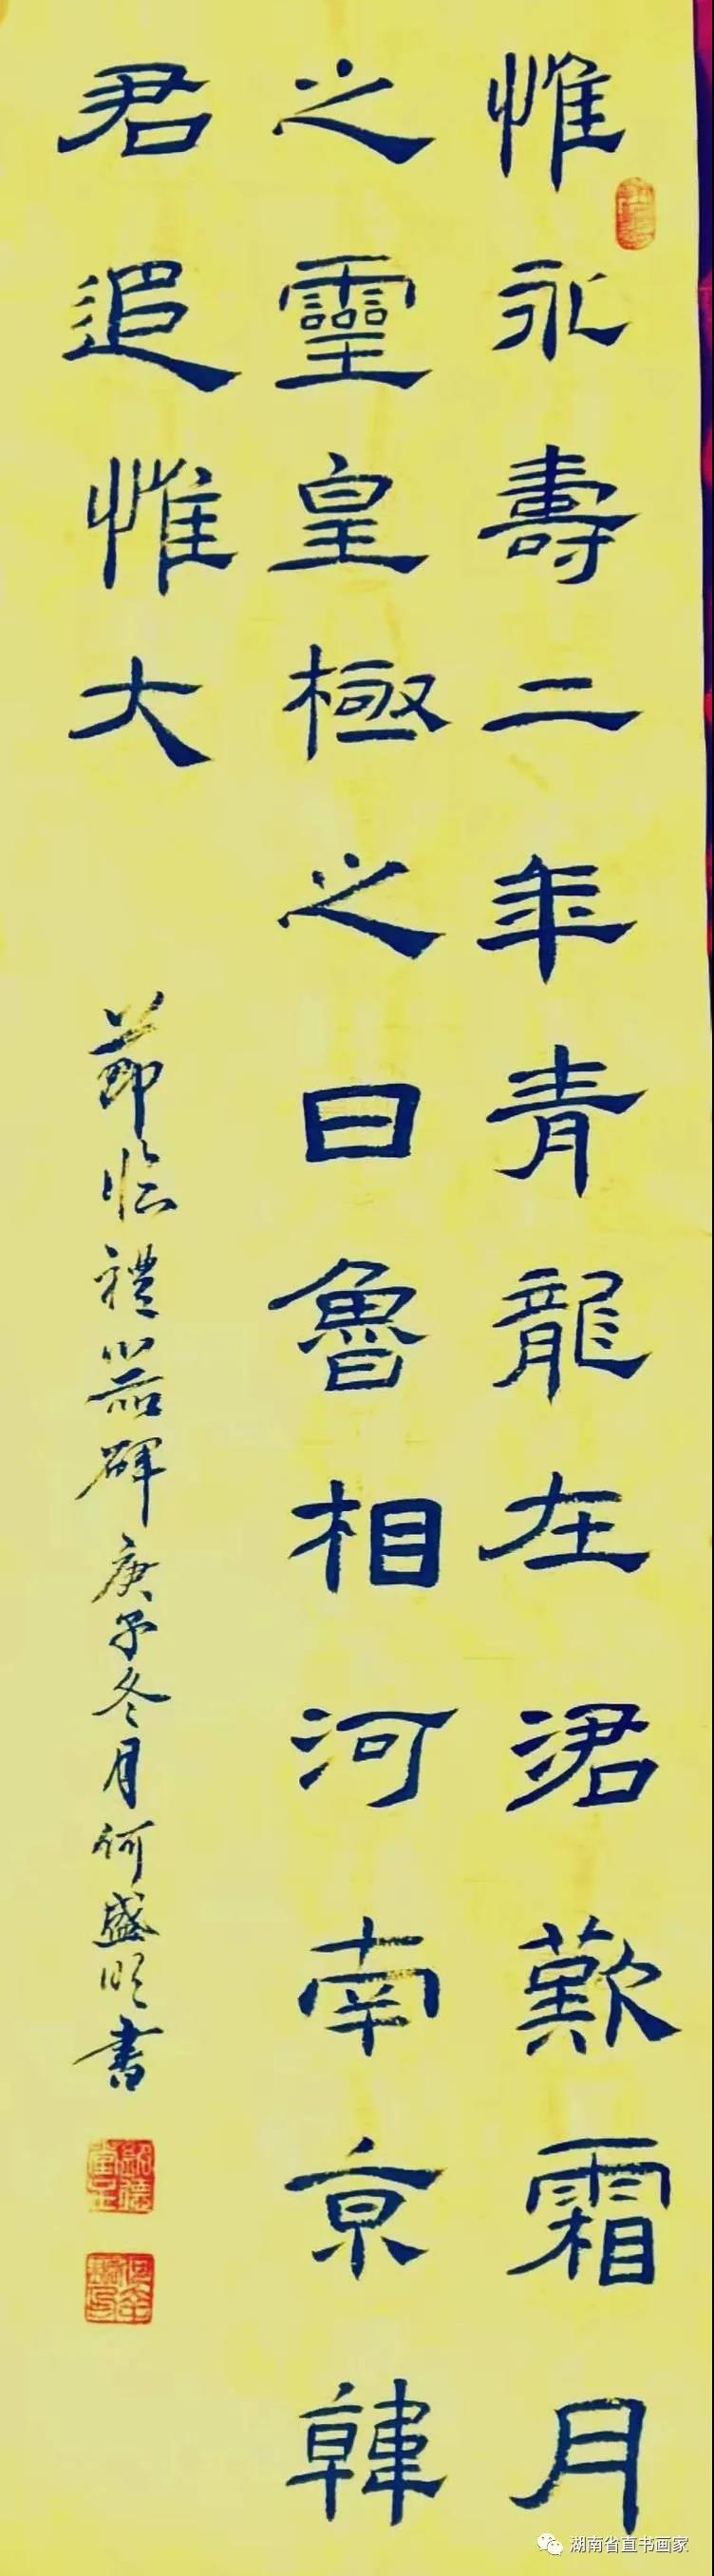 惟永壽二年青龍在涒歎霜月
之靈皇極之日魯相河南京韓
君追惟大
節臨禮器碑庚子冬月何盛順書
湖南省直书画家